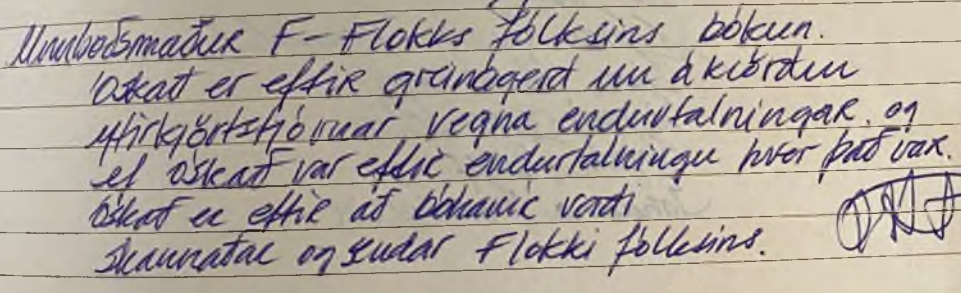 Umboðsmaður F-Flokks fólksins bókun.
Óskað er eftir greinagerð um ákvörðun
yfirkjörstjórnar, vegna endurtalningar, og
ef óskað var eftir endurtalningu hver það var.
Óskað er eftir að bókanir verði
skannaðar og sendar Flokki fólksins.